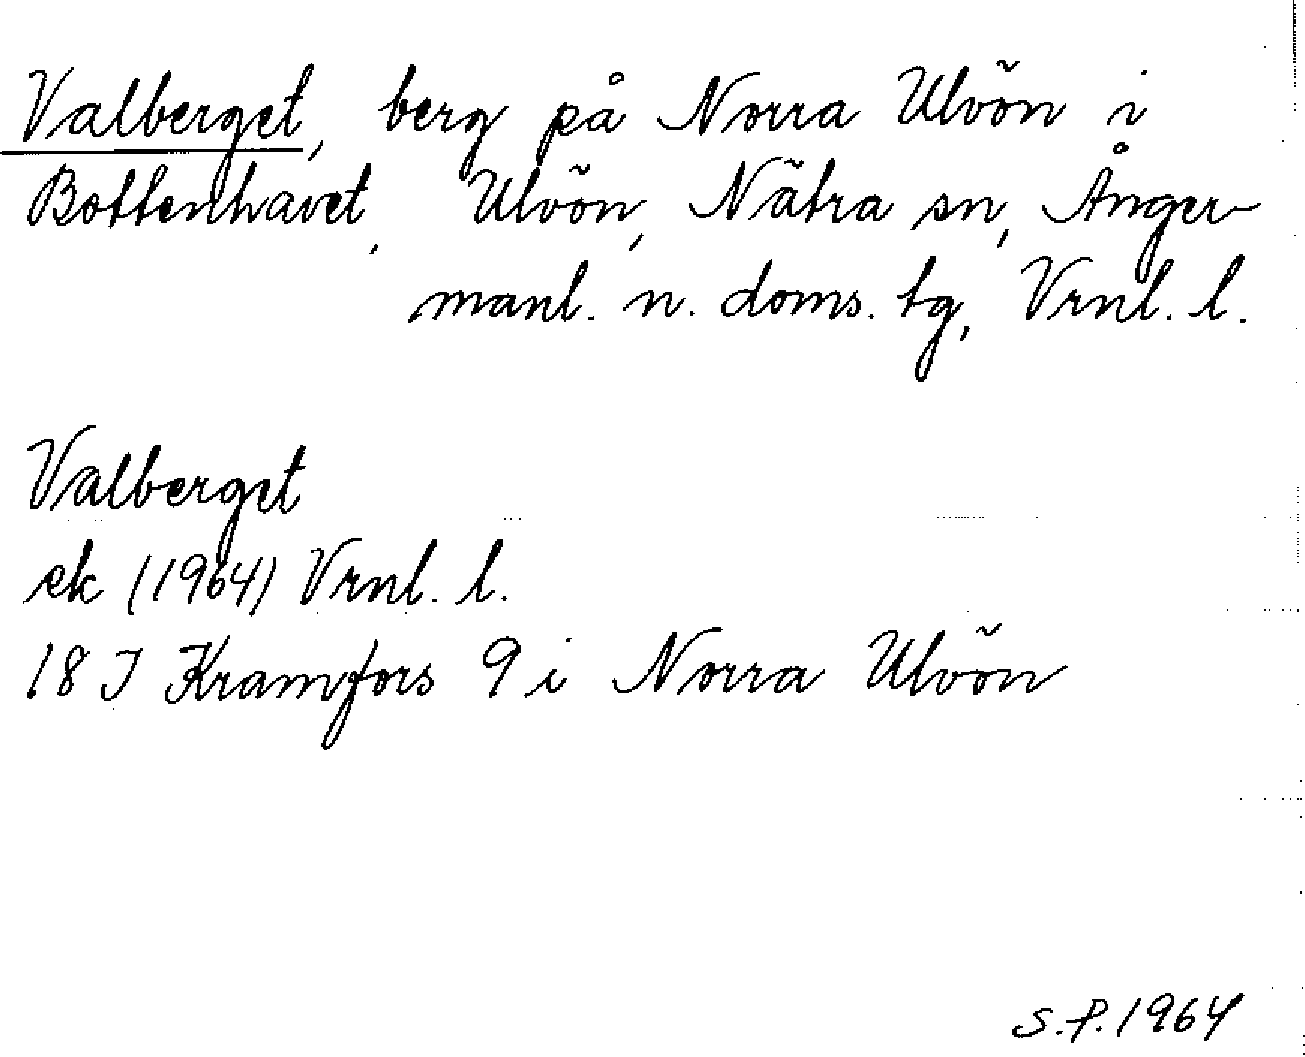 Valberget, berg på Norra Ulvön i
Bottenhavet, Ulvön, Nätra sn, Ånger-
manl. n. doms. tg, Vrnl. l.
Valberget
ek (1964) Vrnl. l.
18 J Kramfors 9 i Norra Ulvön
S.P. 1964